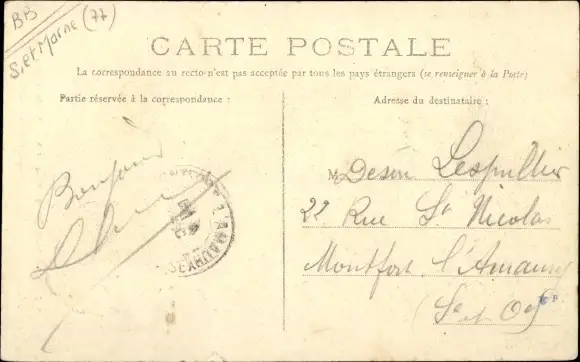 BB
S. et Marne (77)
CARTE POSTALE
La correspondance au recto n'est pas acceptée par tous les pays étrangers (se renseigner à la Poste)
Partie réservée à la correspondance :
Adresse du destinataire :
Bonjour
L'AMAURY
M Lespillier
22 Rue St Nicolas
Montfort l'Amaury
(S et O)